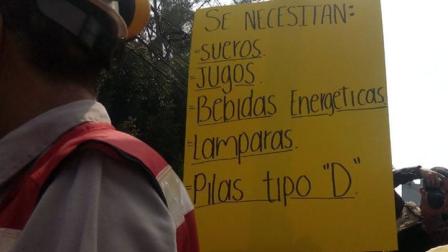 SE NECESITAN:
-SUEROS.
-JUGOS.
-BEBIDAS ENERGÉTICAS
-LAMPARAS.
-PILAS TIPO "D".